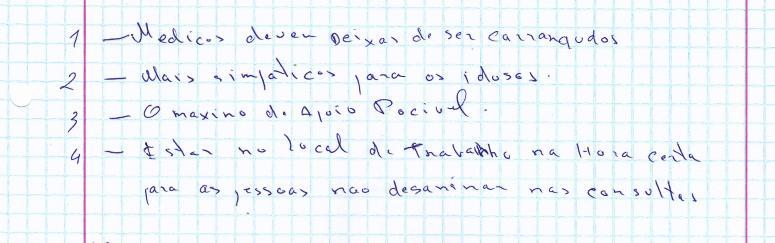 1 — Medicos devem Deixar de ser carrangudos
2 — Mais simpáticos para os idosos.
3 — O maximo de Apoio Pocivel.
4 — Estar no local de trabalho na Hora certa
para as pessoas nao desanimar nas consultas